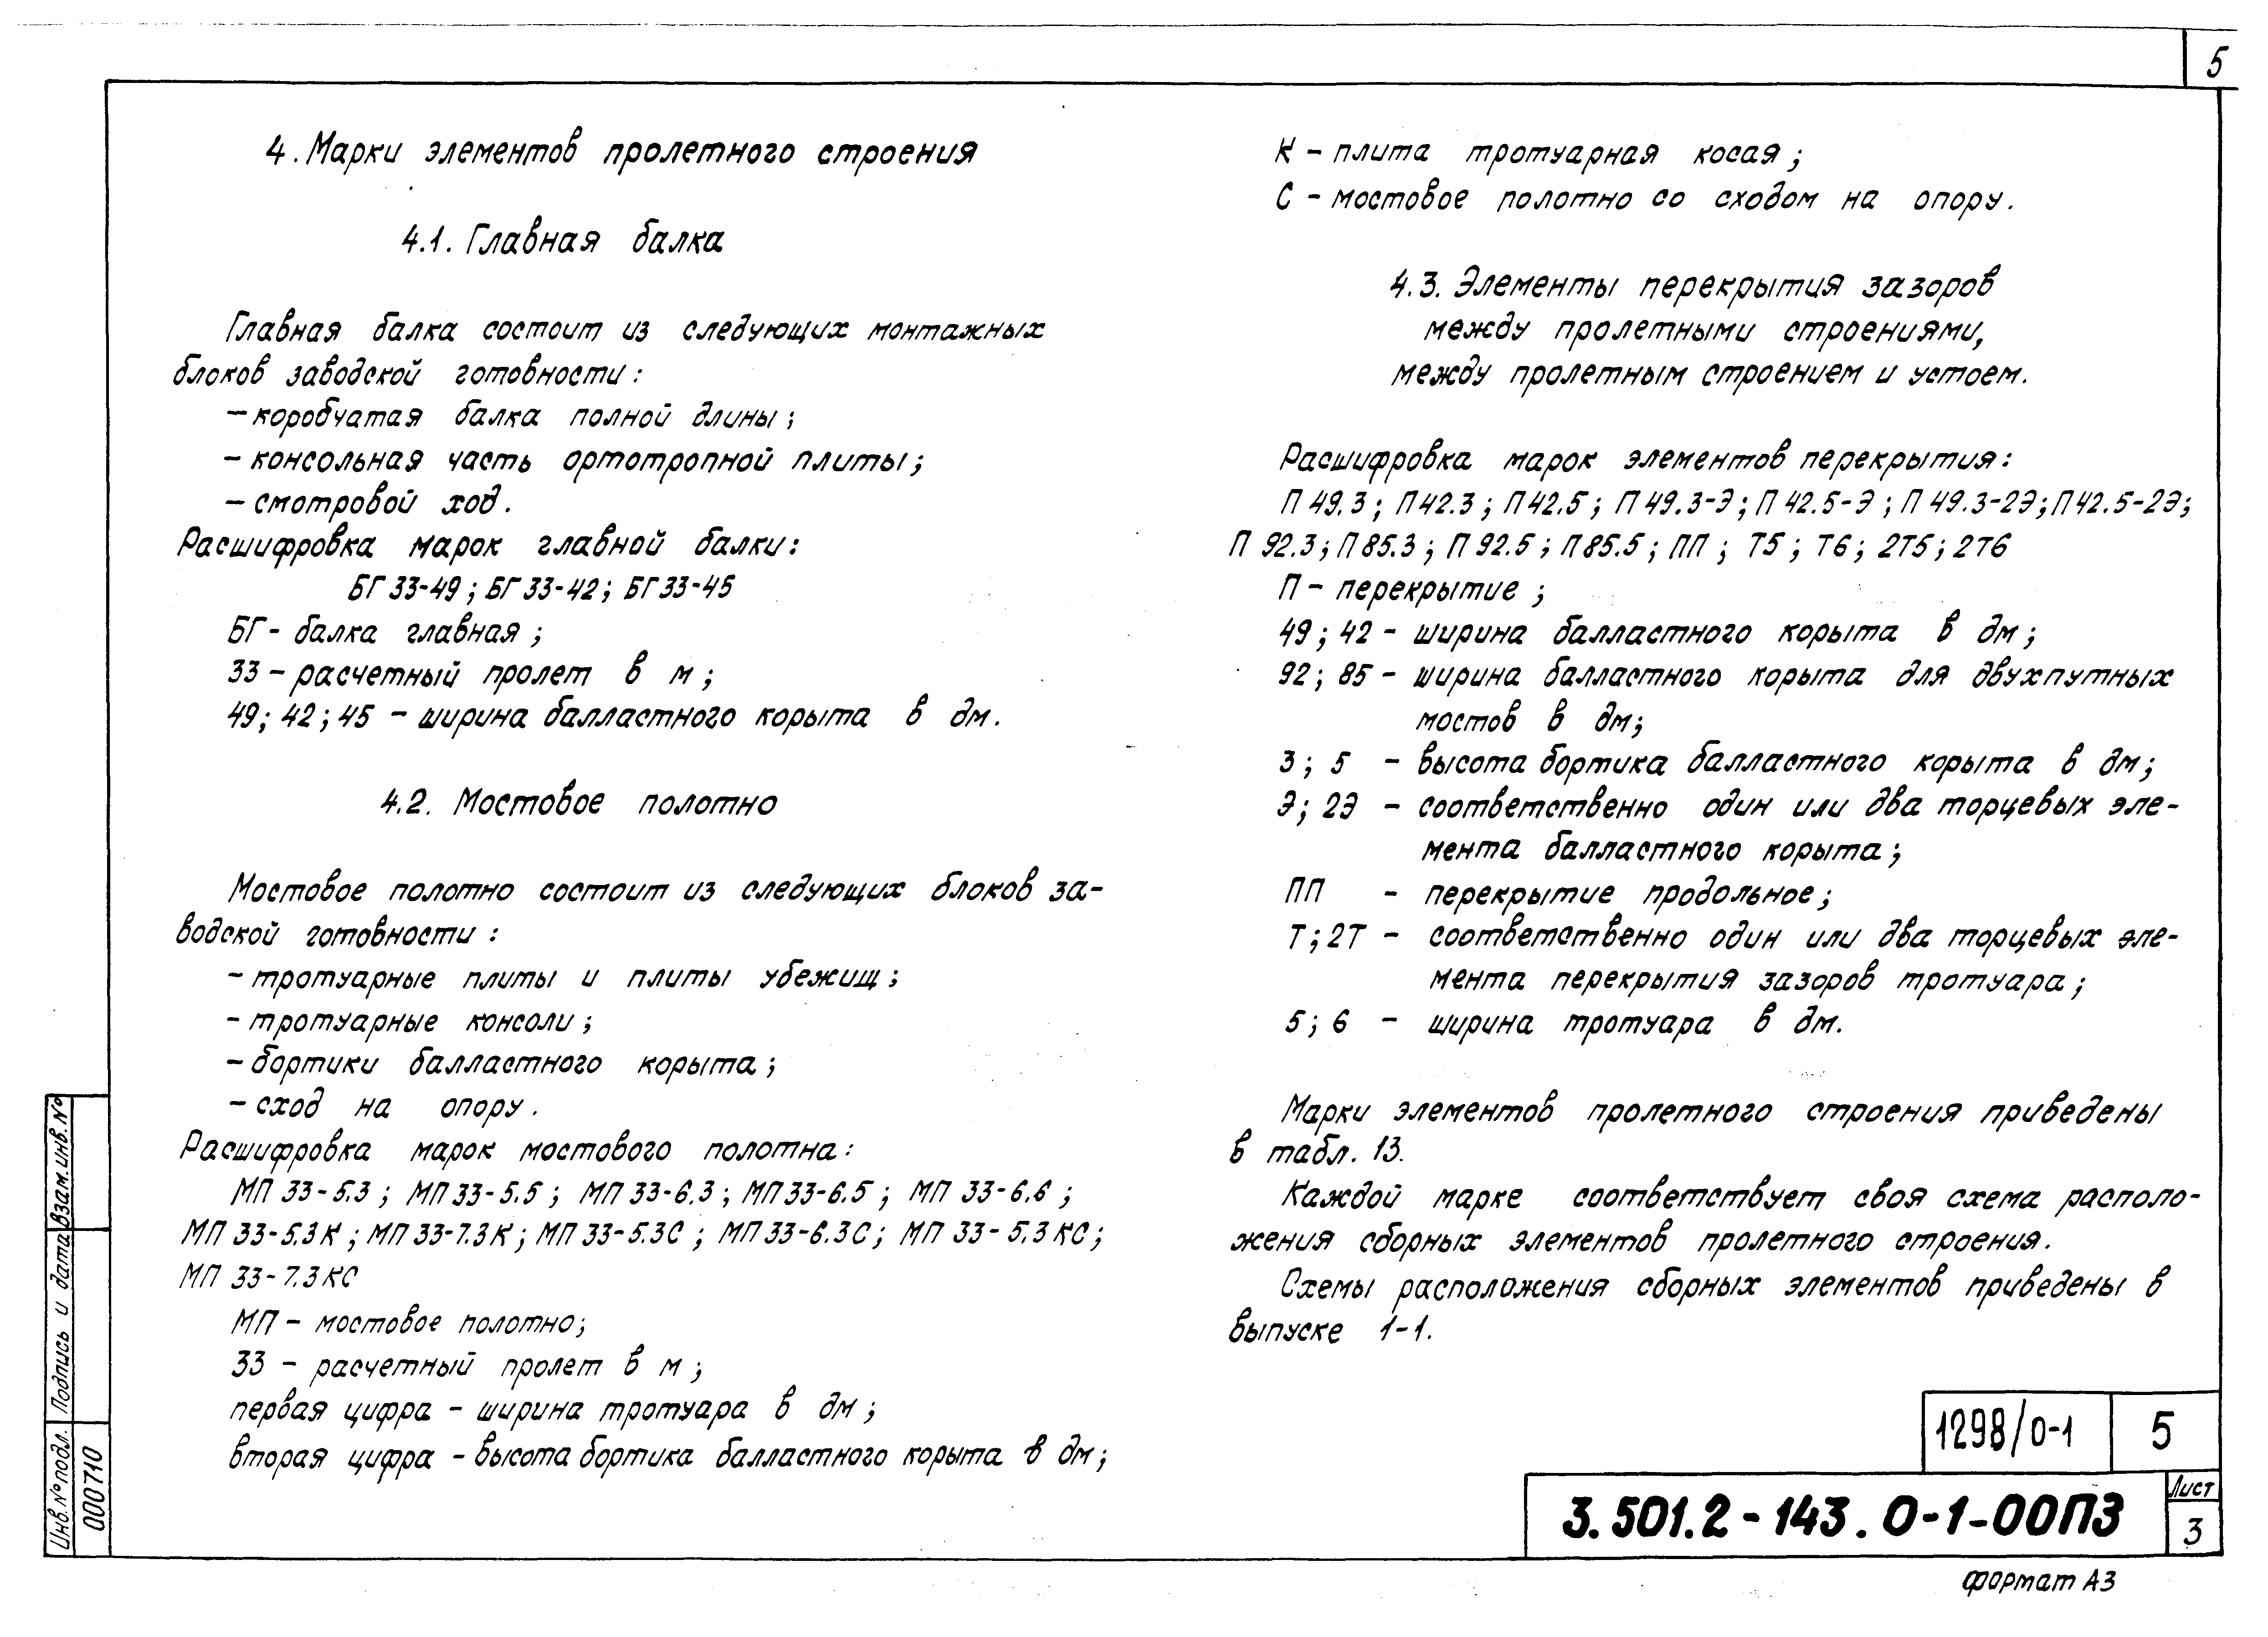 5
4. Марки элементов пролетного строения
4.1. Главная балка
Главная балка состоит из следующих монтажных
блоков заводской готовности:
– коробчатая балка полной длины;
– консольная часть ортотропной плиты;
– смотровой ход.
Расшифровка марок главной балки:
БГ 33-49; БГ 33-42; БГ 33-45
БГ - балка главная;
33 – расчетный пролет в м;
49; 42; 45 – ширина балластного корыта в дм.
4.2. Мостовое полотно
Мостовое полотно состоит из следующих блоков за-
водской готовности:
– тротуарные плиты и плиты убежищ;
– тротуарные консоли;
– бортики балластного корыта;
– сход на опору.
Расшифровка марок мостового полотна:
МП 33-5.3; МП 33-5.5; МП 33-6.3; МП 33-6.5; МП 33-6.6;
МП 33-5.3К; МП 33-7.3К; МП 33-5.3С; МП 33-6.3С; МП 33-5.3КС;
МП 33-7.3КС
МП – мостовое полотно;
33 – расчетный пролет в м;
первая цифра – ширина тротуара в дм;
вторая цифра – высота бортика балластного корыта в дм;
К – плита тротуарная косая;
С – мостовое полотно со сходом на опору.
4.3. Элементы перекрытия зазоров
между пролетными строениями,
между пролетным строением и устоем.
Расшифровка марок элементов перекрытия:
П 49.3; П42.3; П42.5; П 49.3-Э; П 42.5-Э; П 49.3-2Э; П42.5-2Э;
П 92.3; П 85.3; П 92.5; П 85.5; ПП; Т5; Т6; 2Т5; 2Т6
П – перекрытие;
49; 42 – ширина балластного корыта в дм;
92; 85 – ширина балластного корыта для двухпутных
мостов в дм;
3; 5 – высота бортика балластного корыта в дм;
Э; 2Э – соответственно один или два торцевых эле-
мента балластного корыта;
ПП – перекрытие продольное;
Т; 2Т – соответственно один или два торцевых эле-
мента перекрытия зазоров тротуара;
5; 6 – ширина тротуара в дм.
Марки элементов пролетного строения приведены
в табл. 13.
Каждой марке соответствует своя схема располо-
жения сборных элементов пролетного строения.
Схемы расположения сборных элементов приведены в
выпуске 1-1.
Инв.№ подл. Подпись и дата Взам.инв.№
000710
1298/0-1 5
3.501.2-143.0-1-00ПЗ
Лист
3
формат А3